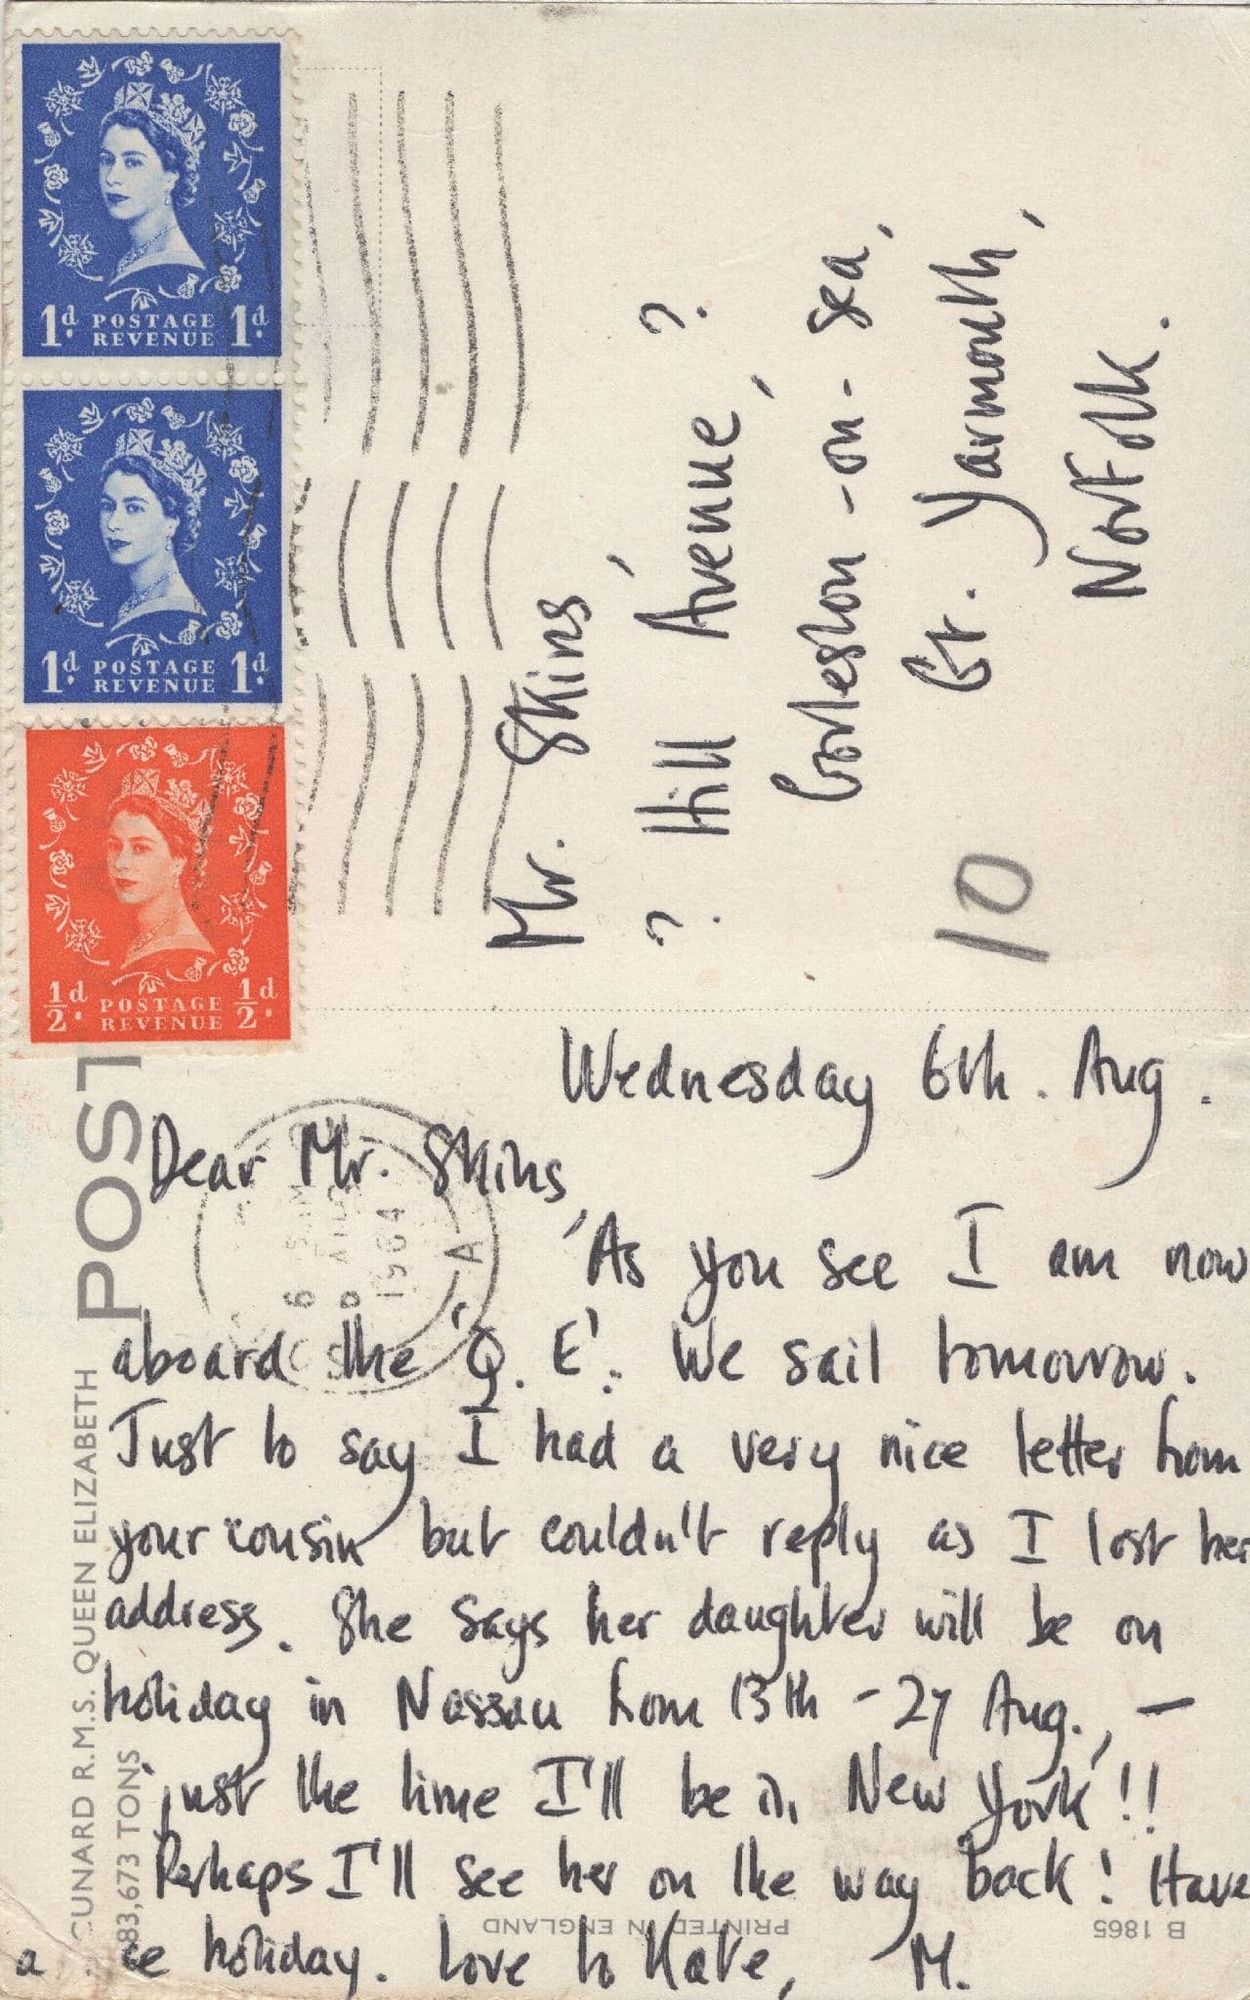 1d. POSTAGE REVENUE 1d.
1d. POSTAGE REVENUE 1d.
½d. POSTAGE REVENUE ½d.
Mr. Skins,
? Hill Avenue, ?
Gorleston-on-sea,
Gt. Yarmouth,
Norfolk.
10
POST
CUNARD R.M.S. QUEEN ELIZABETH
83,673 TONS
1964
A
Wednesday 6th. Aug.
Dear Mr. Skins,
As you see I am now
aboard the 'Q. E'. We sail tomorrow.
Just to say I had a very nice letter from
your cousin but couldn't reply as I lost her
address. She says her daughter will be on
holiday in Nassau from 13th - 27 Aug., -
just the time I'll be in New York!!
Perhaps I'll see her on the way back! Have
a ce holiday. Love to Kate, M.
PRINTED IN ENGLAND
B 1865